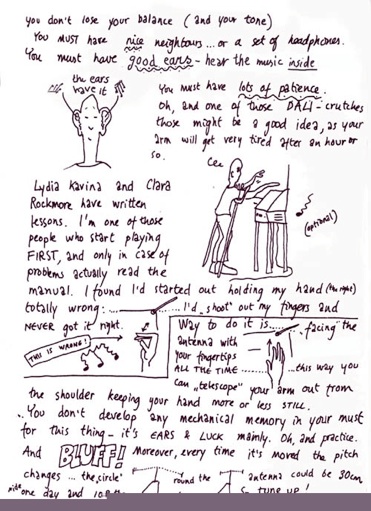 you don't lose your balance (and your tone)
You must have nice neighbours... or a set of headphones.
You must have good ears - hear the music inside
the ears
have it
You must have lots of patience.
Oh, and one of those DALI-crutches
those might be a good idea, as your
arm will get very tired after an hour or
so.
(optional)
Lydia Kavina and Clara
Rockmore have written
lessons. I'm one of those
people who start playing
FIRST, and only in case of
problems actually read the
manual. I found I'd started out holding my hand (the right)
totally wrong: ... I'd „shoot" out my fingers and
NEVER got it right.
THIS IS WRONG!
Way to do it is...... „facing" the
antenna with
your fingertips
ALL THE TIME ............ this way you
can „telescope" your arm out from
the shoulder keeping your hand more or less STILL.
You don't develop any mechanical memory in your must
for this thing - it's EARS & LUCK mainly. Oh, and practice.
And BLUFF! Moreover, every time it's moved the pitch
changes ... the „circle" round the antenna could be 30cm
one day and
tune up!